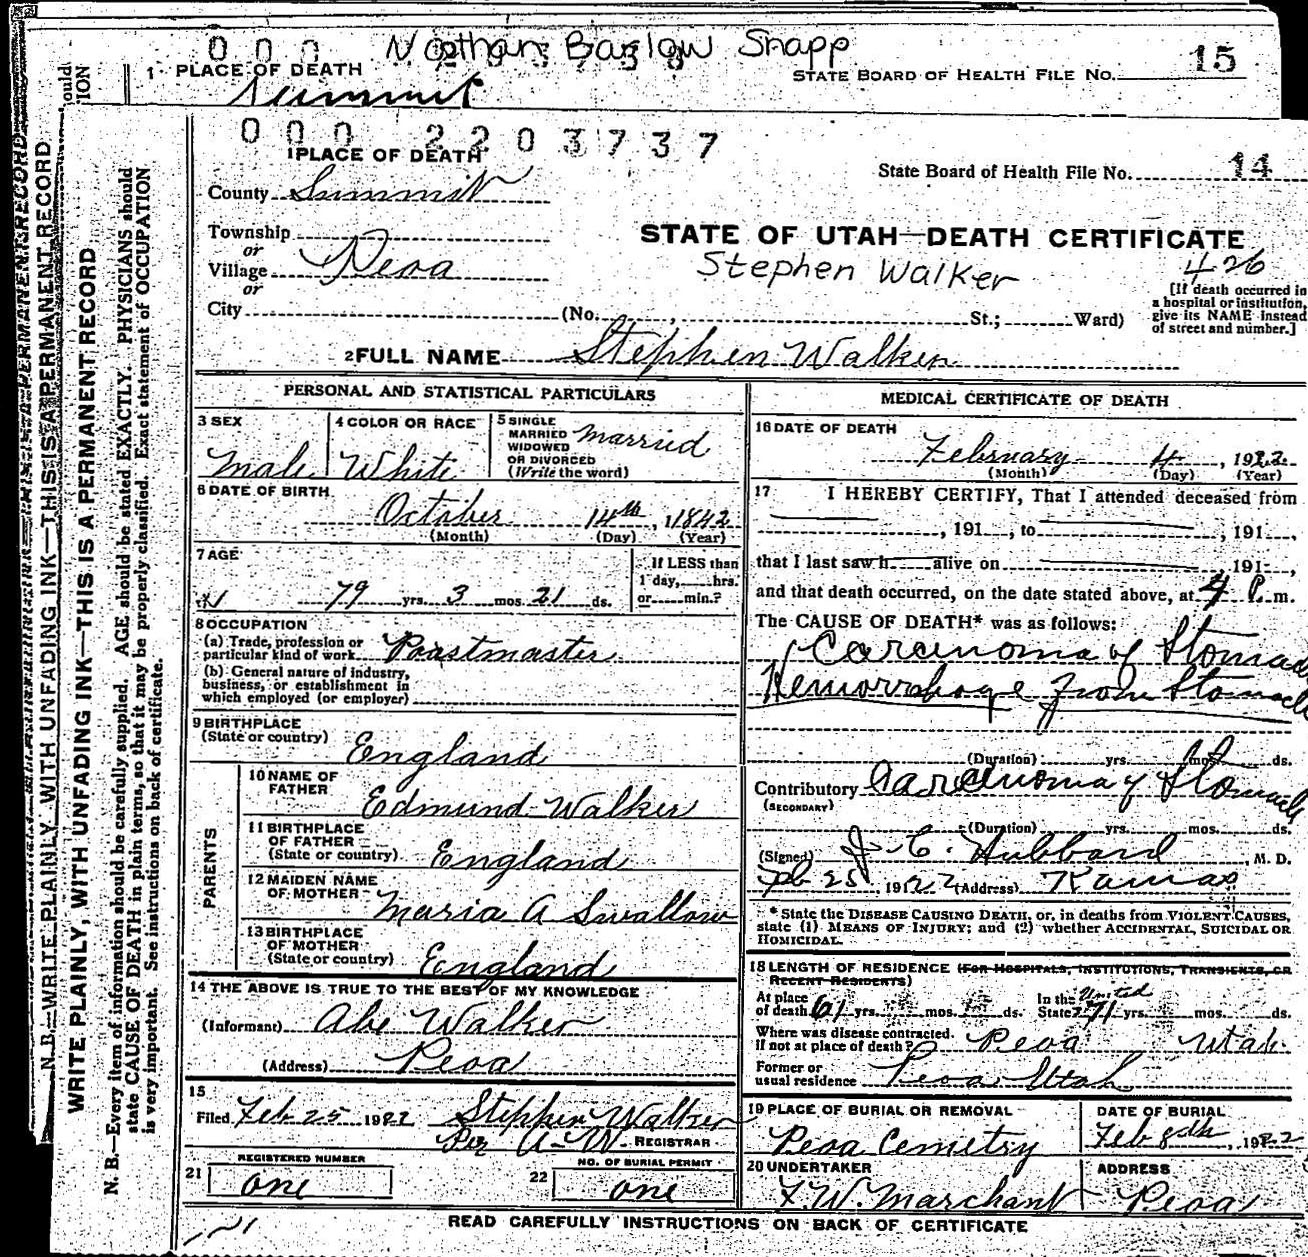 000 Nathan Barlow Snapp
1 PLACE OF DEATH
STATE BOARD OF HEALTH FILE NO. 15
Summit
000 2203737
1 PLACE OF DEATH
State Board of Health File No. 14
County Summit
Township
or
Village Peoa
or
City
STATE OF UTAH—DEATH CERTIFICATE
Stephen Walker
426
[If death occurred in
a hospital or institution,
give its NAME instead
of street and number.]
(No. , St.; Ward)
2 FULL NAME Stephen Walker
PERSONAL AND STATISTICAL PARTICULARS
3 SEX
Male
4 COLOR OR RACE
White
5 SINGLE
MARRIED
WIDOWED
OR DIVORCED
(Write the word)
Married
6 DATE OF BIRTH
October 14th, 1842
(Month) (Day) (Year)
7 AGE
79 yrs. 3 mos. 21 ds.
If LESS than
1 day, hrs.
or min.?
8 OCCUPATION
(a) Trade, profession or
particular kind of work Poastmaster
(b) General nature of industry,
business, or establishment in
which employed (or employer)
9 BIRTHPLACE
(State or country)
England
PARENTS
10 NAME OF
FATHER
Edmund Walker
11 BIRTHPLACE
OF FATHER
(State or country) England
12 MAIDEN NAME
OF MOTHER
Maria A Swallow
13 BIRTHPLACE
OF MOTHER
(State or country) England
14 THE ABOVE IS TRUE TO THE BEST OF MY KNOWLEDGE
(Informant) Abe Walker
(Address) Peoa
15
Filed Feb 25 1922 Stephen Walker
Per A. W. REGISTRAR
REGISTERED NUMBER
21 one
NO. OF BURIAL PERMIT
22 one
MEDICAL CERTIFICATE OF DEATH
16 DATE OF DEATH
February 4, 1922
(Month) (Day) (Year)
17 I HEREBY CERTIFY, That I attended deceased from
, 191 , to , 191 ,
that I last saw h alive on , 191 ,
and that death occurred, on the date stated above, at 4 P. m.
The CAUSE OF DEATH* was as follows:
Carcinoma of Stomach
Hemorrhage from Stomach
(Duration) yrs. mos. ds.
Contributory Carcinoma of Stomach
(SECONDARY)
(Duration) yrs. mos. ds.
(Signed) J. C. Hubbard, M. D.
Feb 25, 1922 (Address) Kamas
* State the DISEASE CAUSING DEATH, or, in deaths from VIOLENT CAUSES,
state (1) MEANS OF INJURY; and (2) whether ACCIDENTAL, SUICIDAL OR
HOMICIDAL.
18 LENGTH OF RESIDENCE (FOR HOSPITALS, INSTITUTIONS, TRANSIENTS, OR
RECENT RESIDENTS)
At place
of death 61 yrs. mos. ds.
In the United
State 71 yrs. mos. ds.
Where was disease contracted,
if not at place of death? Peoa Utah
Former or
usual residence Peoa Utah
19 PLACE OF BURIAL OR REMOVAL
Peoa Cemetry
DATE OF BURIAL
Feb 8th, 1922
20 UNDERTAKER
F. W. Marchant
ADDRESS
Peoa
READ CAREFULLY INSTRUCTIONS ON BACK OF CERTIFICATE
N. B.—WRITE PLAINLY, WITH UNFADING INK—THIS IS A PERMANENT RECORD
WRITE PLAINLY, WITH UNFADING INK—THIS IS A PERMANENT RECORD
N. B.—Every item of information should be carefully supplied. AGE should be stated EXACTLY. PHYSICIANS should
state CAUSE OF DEATH in plain terms, so that it may be properly classified. Exact statement of OCCUPATION
is very important. See instructions on back of certificate.